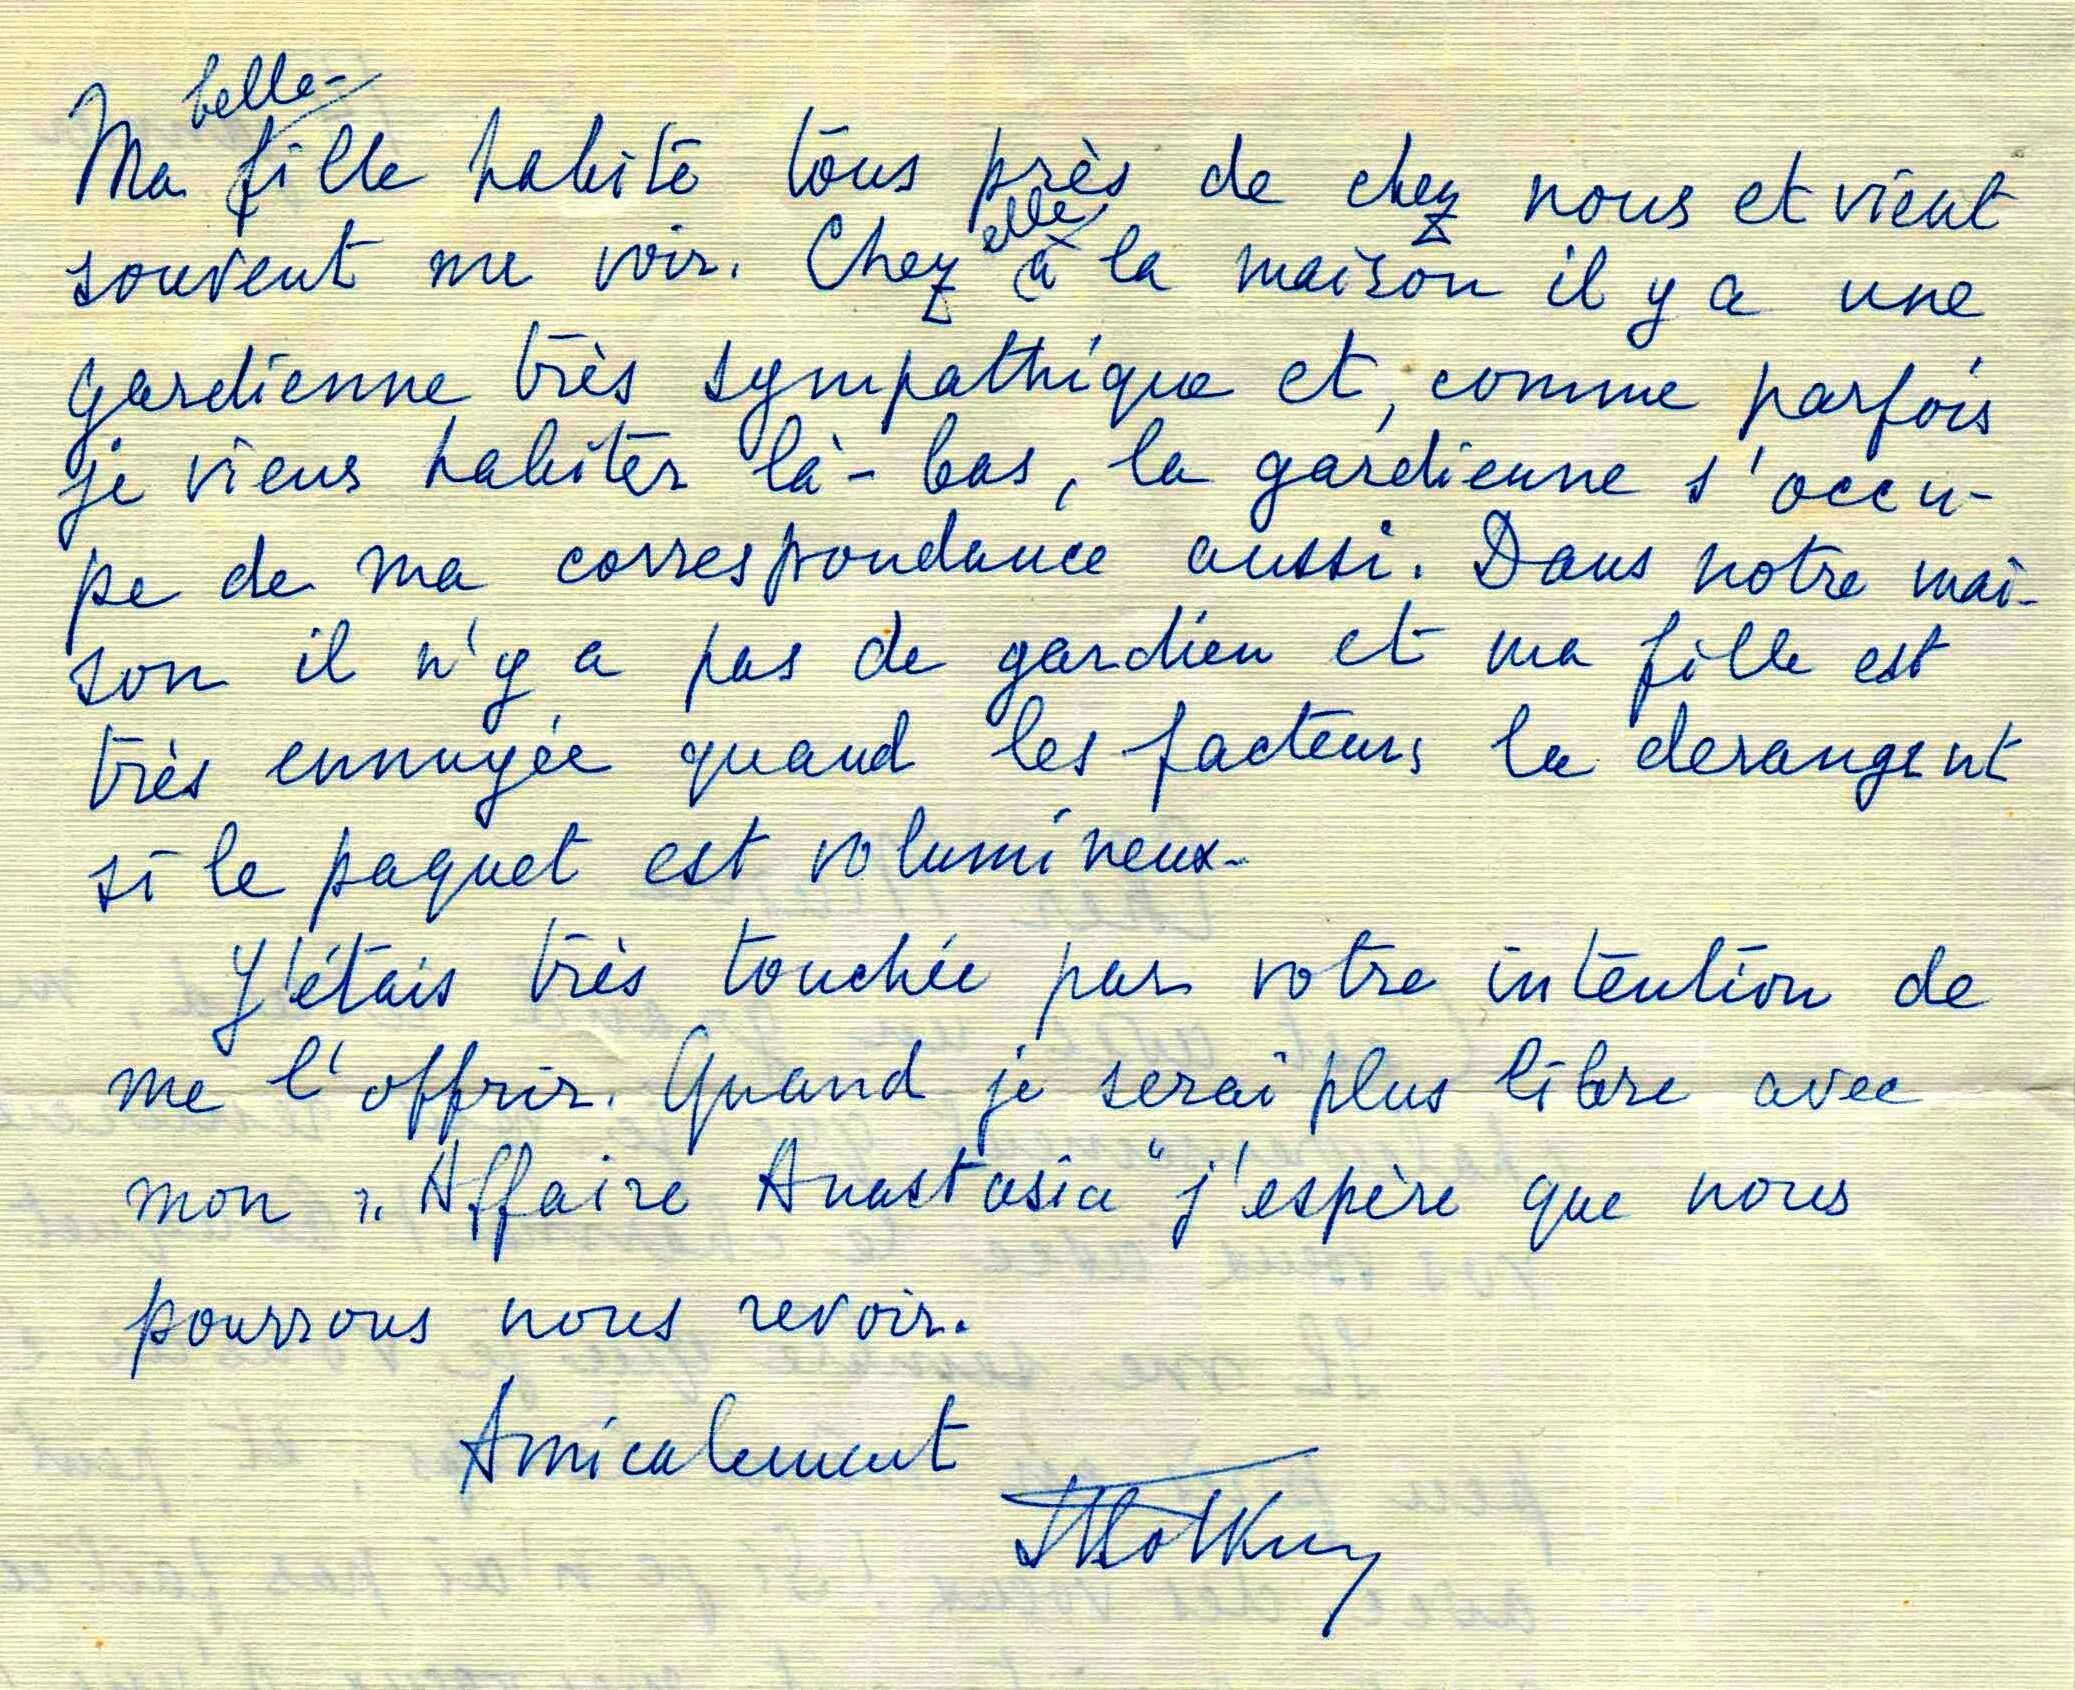 Ma belle-fille habite tous près de chez nous et vient
souvent me voir. Chez elle à la maison il y a une
gardienne très sympathique et, comme parfois
je viens habiter là-bas, la gardienne s'occu-
pe de ma correspondance aussi. Dans notre mai-
son il n'y a pas de gardien et ma fille est
très ennuyée quand les facteurs la derangent
si le paquet est volumineux-
J'étais très touchée par votre intention de
me l'offrir. Quand je serai plus libre avec
mon „Affaire Anastasia" j'espère que nous
pourrons nous revoir.
Amicalement